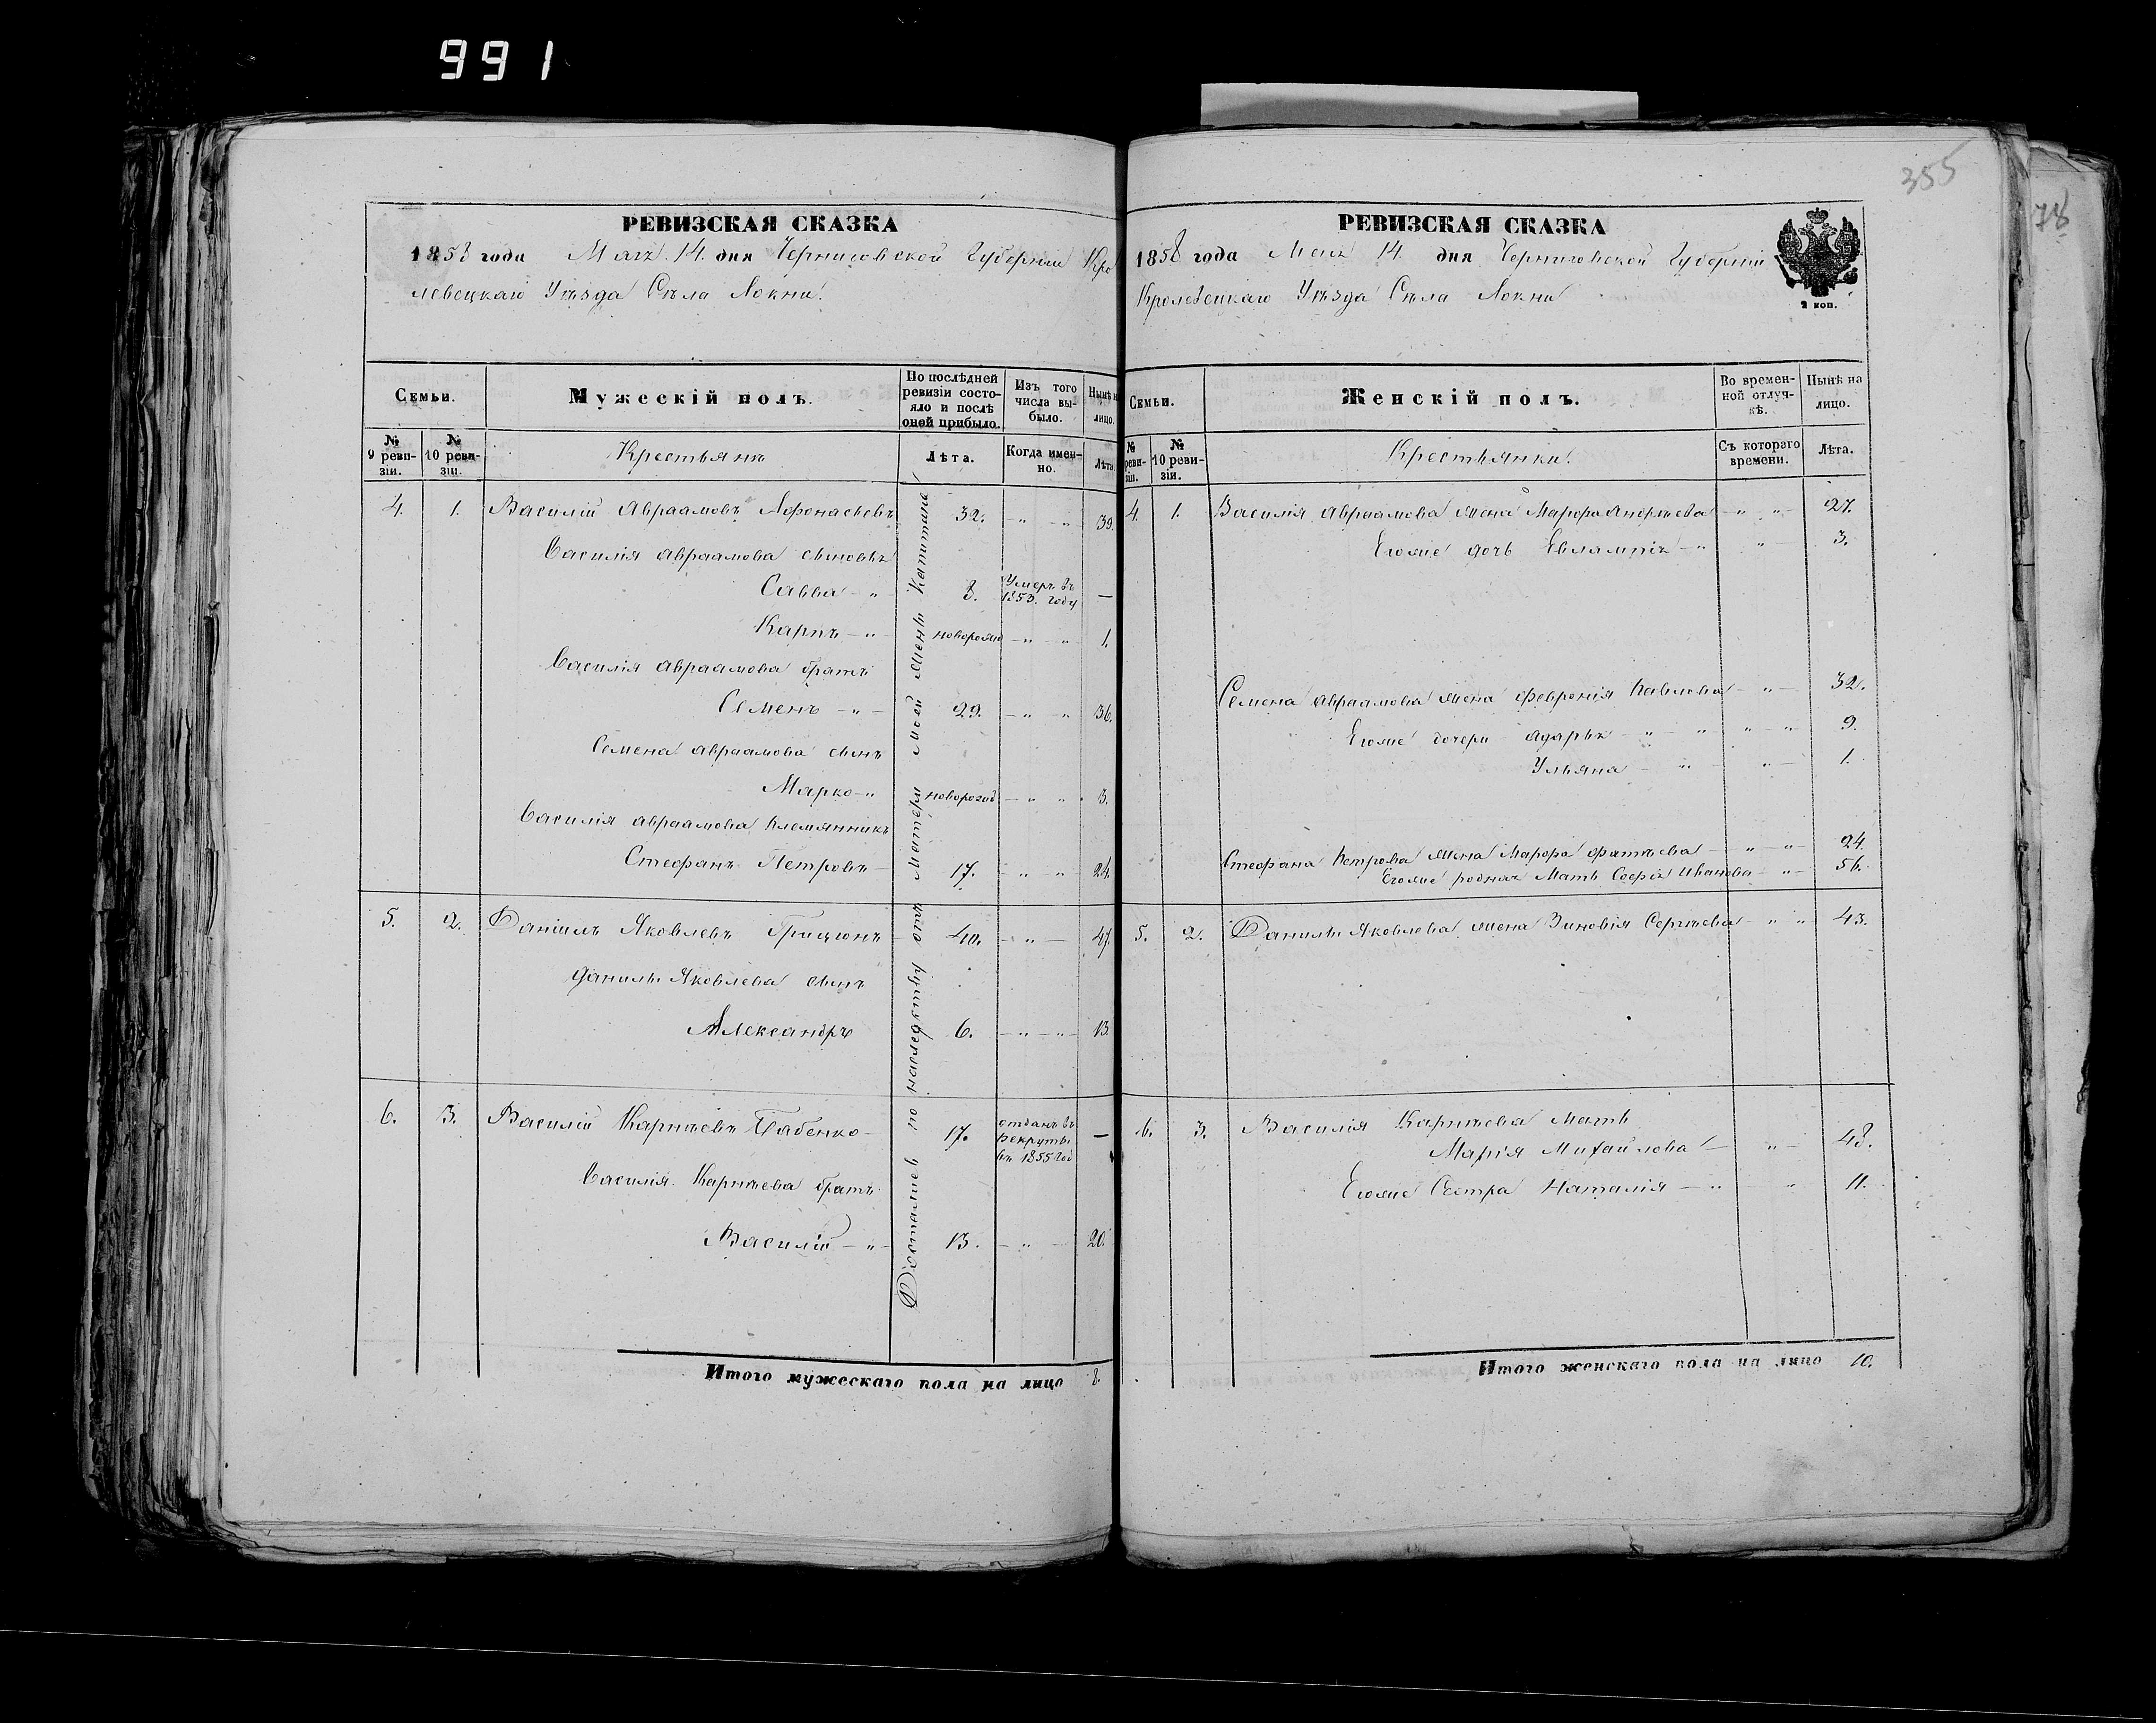 991
355
78
РЕВИЗСКАЯ СКАЗКА
1858 года Маія 14. дня Черниговской Губерніи Кро
левецкаго Уѣзда Села Локни.
Семьи.
Мужескій полъ.
По послѣдней ревизіи состояло и послѣ оной прибыло.
Изъ того числа выбыло.
Нынѣ на лицо.
№ 9 ревизіи.
№ 10 ревизіи.
Крестьянъ
Лѣта.
Когда именно.
Лѣта
4. 1. Василій Авраамовъ Афонасьевъ 32. - " - " 39.
Василія Авраамова сыновья
Савва - " 8. Умеръ въ 1853. году —
Карпъ - " - новорожд - " - " 1.
Василія Авраамова братъ
Семенъ - " - 29. - " - " 36.
Семена Авраамова сынъ
Марко - " новорожд - " " 3.
Василія Авраамова племянникъ
Стефанъ Петровъ - 17. - " " 24.
5. 2. Даніилъ Яковлевъ 40. - " - 47.
Данила Яковлева сынъ
Александръ 6. - " - " - 13.
6. 3. Василій Карпѣевъ 17. отданъ въ рекруты въ 1855 год —
Василія Карпѣева братъ
Василій - " - 13. - " - 20.
Достались по наслѣдству отъ Матери моей жены Капитана
Итого мужескаго пола на лицо 8.
РЕВИЗСКАЯ СКАЗКА
1858 года Маія 14. дня Черниговской Губерніи
Кролевецкаго Уѣзда Села Локни
2 коп.
Семьи.
Женскій полъ.
Во временной отлучкѣ.
Нынѣ на лицо.
№ реви-зіи.
№ 10 ревизіи.
Крестьянки.
Съ котораго времени.
Лѣта.
4. 1. Василія Авраамова жена Марфа Андрѣева - " " - 27.
Егоже дочь Евлампія - " " 3.
Семена Авраамова жена Февронія Павлова - " - 32.
Егоже дочери Дарья - " - " " - " - 9.
Ульяна - " - " - 1.
Стефана Петрова жена Марфа Фатѣева - " - " - 24.
Егоже родная Мать Софія Иванова - " - 56.
5. 2. Данила Яковлева жена Зиновія Сергѣева - " " 43.
6. 3. Василія Карпѣева Мать
Марія Михайлова - " - 48.
Егоже Сестра Наталія - " - " 11.
Итого женскаго пола на лицо 10.